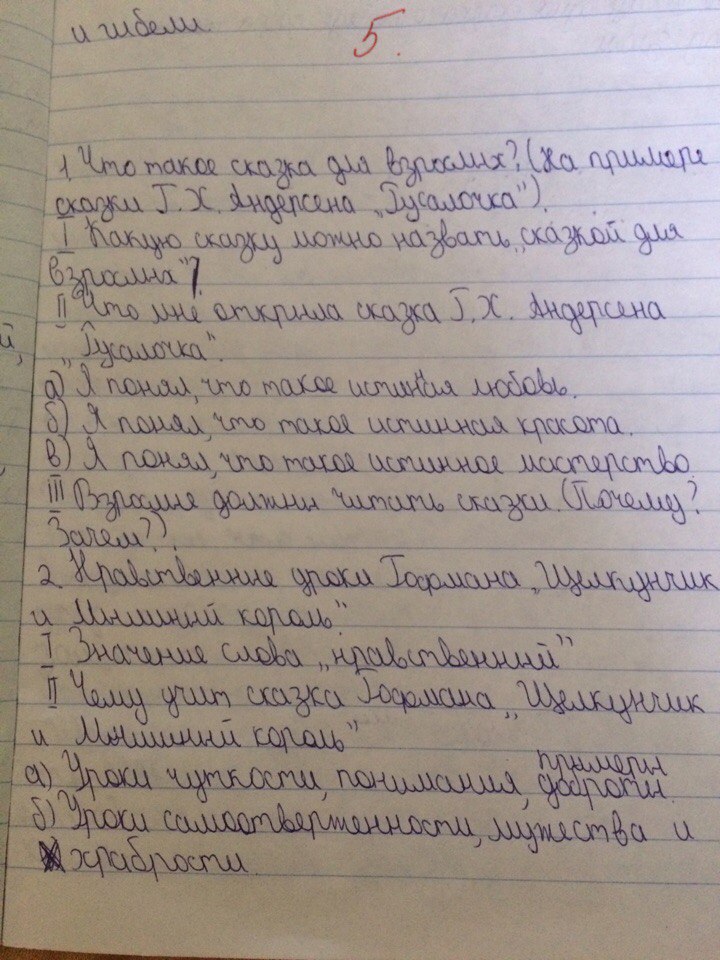 и гибели.
5.
1 Что такое сказка для взрослых? (На примере
сказки Г. Х. Андерсена „Русалочка").
I Какую сказку можно назвать „сказкой для
взрослых"?
II Что мне открыла сказка Г. Х. Андерсена
„Русалочка".
а) Я понял, что такое истиная любовь.
б) Я понял, что такое истинная красота.
в) Я понял, что такое истинное мастерство
III Взрослые должны читать сказки. (Почему?
Зачем?).
2 Нравственные уроки Гофмана „Щелкунчик
и Мышиный король".
I Значение слова „нравственный"
II Чему учит сказка Гофмана „Щелкунчик
и Мышиный король"
примеры
а) Уроки чуткости, понимания, доброты.
б) Уроки самоотверженности, мужества и
храбрости.
й,